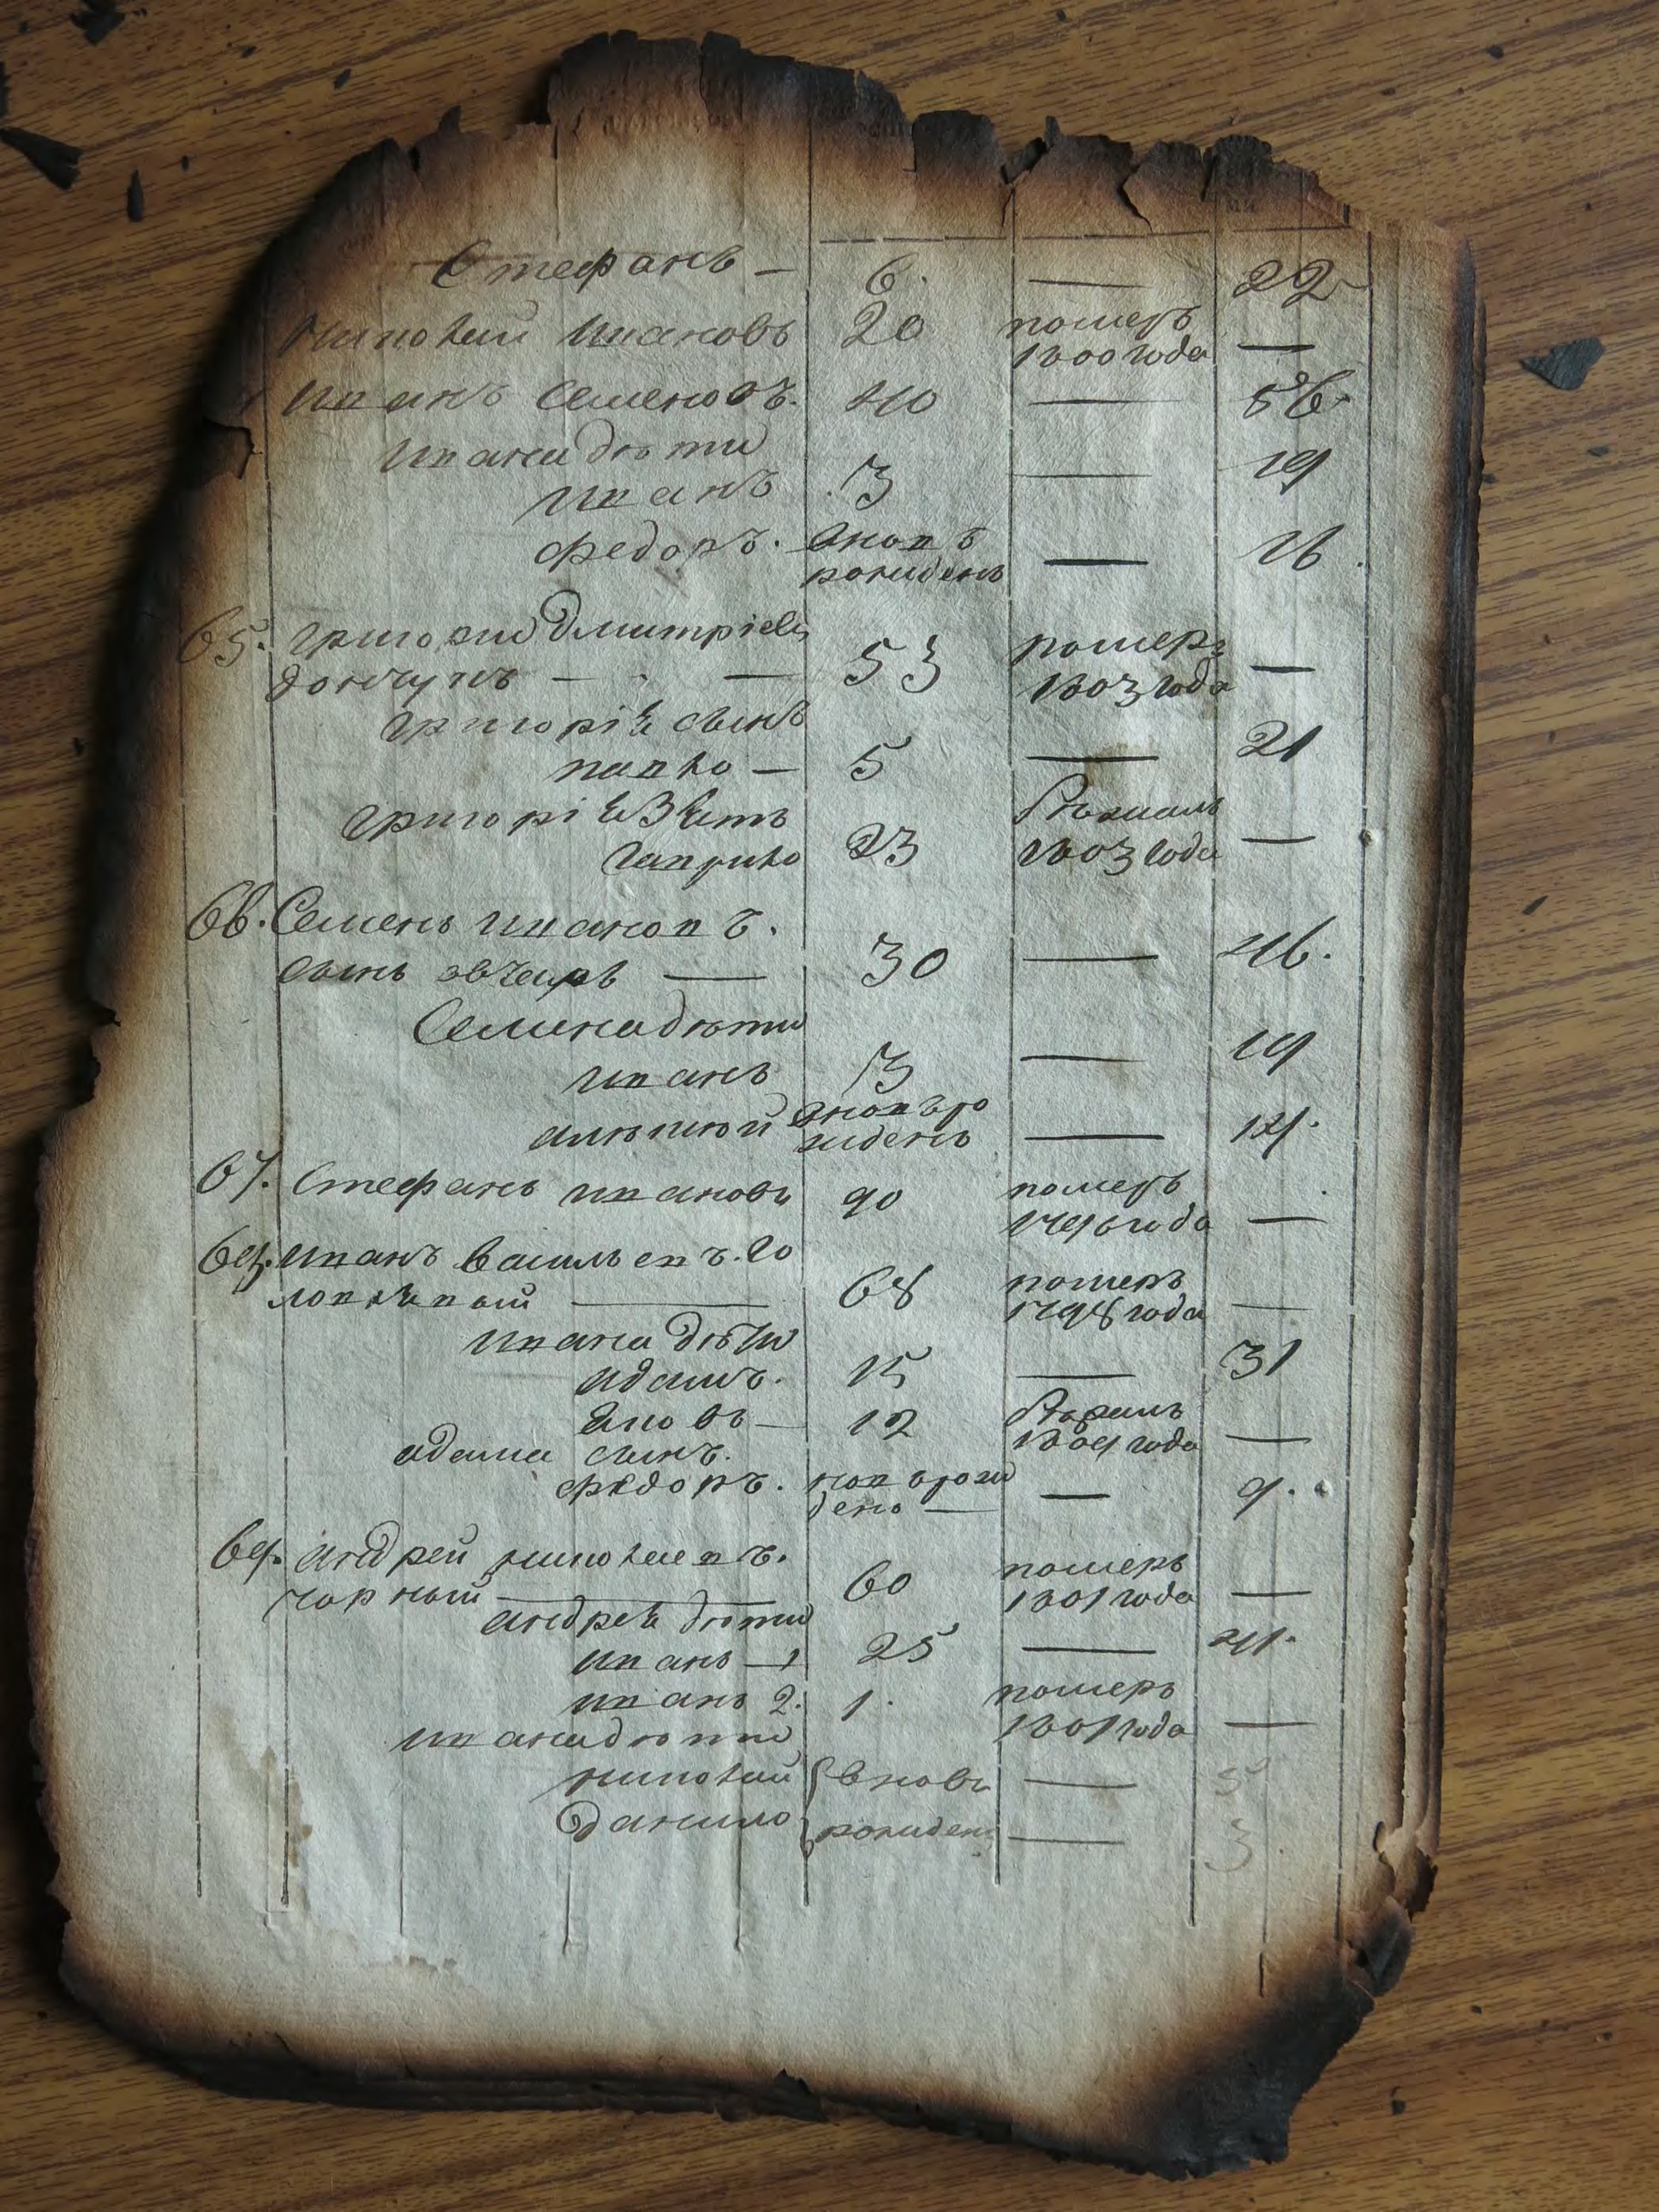 Стефанъ — 6. — 22
Никопай Ивановъ 20 померъ
1800 года —
Иванъ Семеновъ. 40 — 56.
Ивана дѣти
Иванъ 3 — 19
Федоръ. вновъ — 16
рожденъ
65. Григорий Дмитріевъ 53 померъ —
1803 года
Григорія сынъ
Павло — 5 — 21
Григорія зять
Гаврило 23 1803 года —
66. Семенъ Ивановъ.
сынъ 30 — 46.
Семена дѣти
Иванъ 3 — 19
Алѣксѣй вновъ ро
жденъ — 14.
67. Стефанъ Ивановъ 90 померъ
1796 года —
68. Иванъ Васильевъ. Го
68 померъ
1798 года —
Ивана дѣти
Адамъ. 15 — 31
Яковъ — 12
1804 года —
Адама сынъ.
Федоръ. новърож
денъ — — 9.
69. Андрей Николаевъ.
Чорный — 60 померъ
1801 года —
Андрея дѣти
Иванъ — 1 25 — 41.
Иванъ 2. 1. померъ
1801 года —
Ивана дѣти
Николай { вновъ — 5
Данило { рожденъ — 3